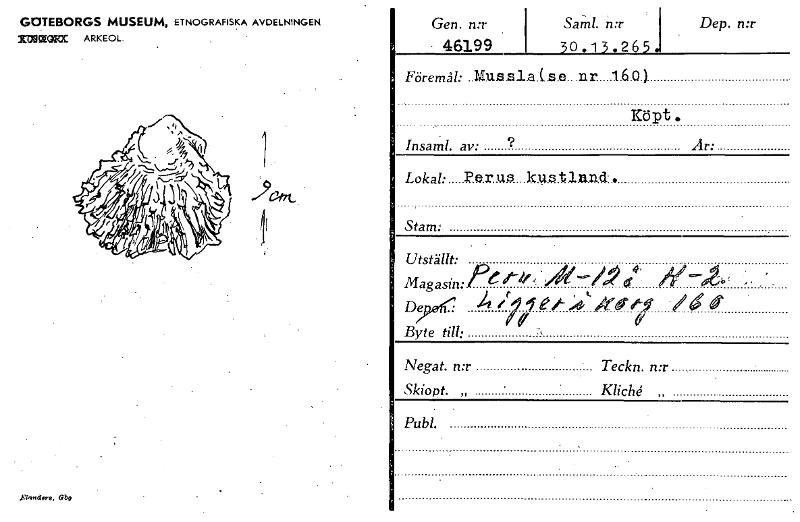 GÖTEBORGS MUSEUM, ETNOGRAFISKA AVDELNINGEN
ARKEOL.
9 cm
Elanders, Gbg
Gen. n:r Saml. n:r Dep. n:r
46199 30.13.265.
Föremål: Mussla(se nr 160)
Köpt.
Insaml. av: ? År:
Lokal: Perus kustland.
Stam:
Utställt:
Magasin: Peru. M-12å H-2.
Depon.: Ligger i korg 160
Byte till:
Negat. n:r Teckn. n:r
Skiopt. „ Kliché „
Publ.